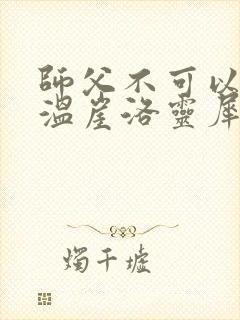 師父不可以
溫崖洛靈犀
燭千墟